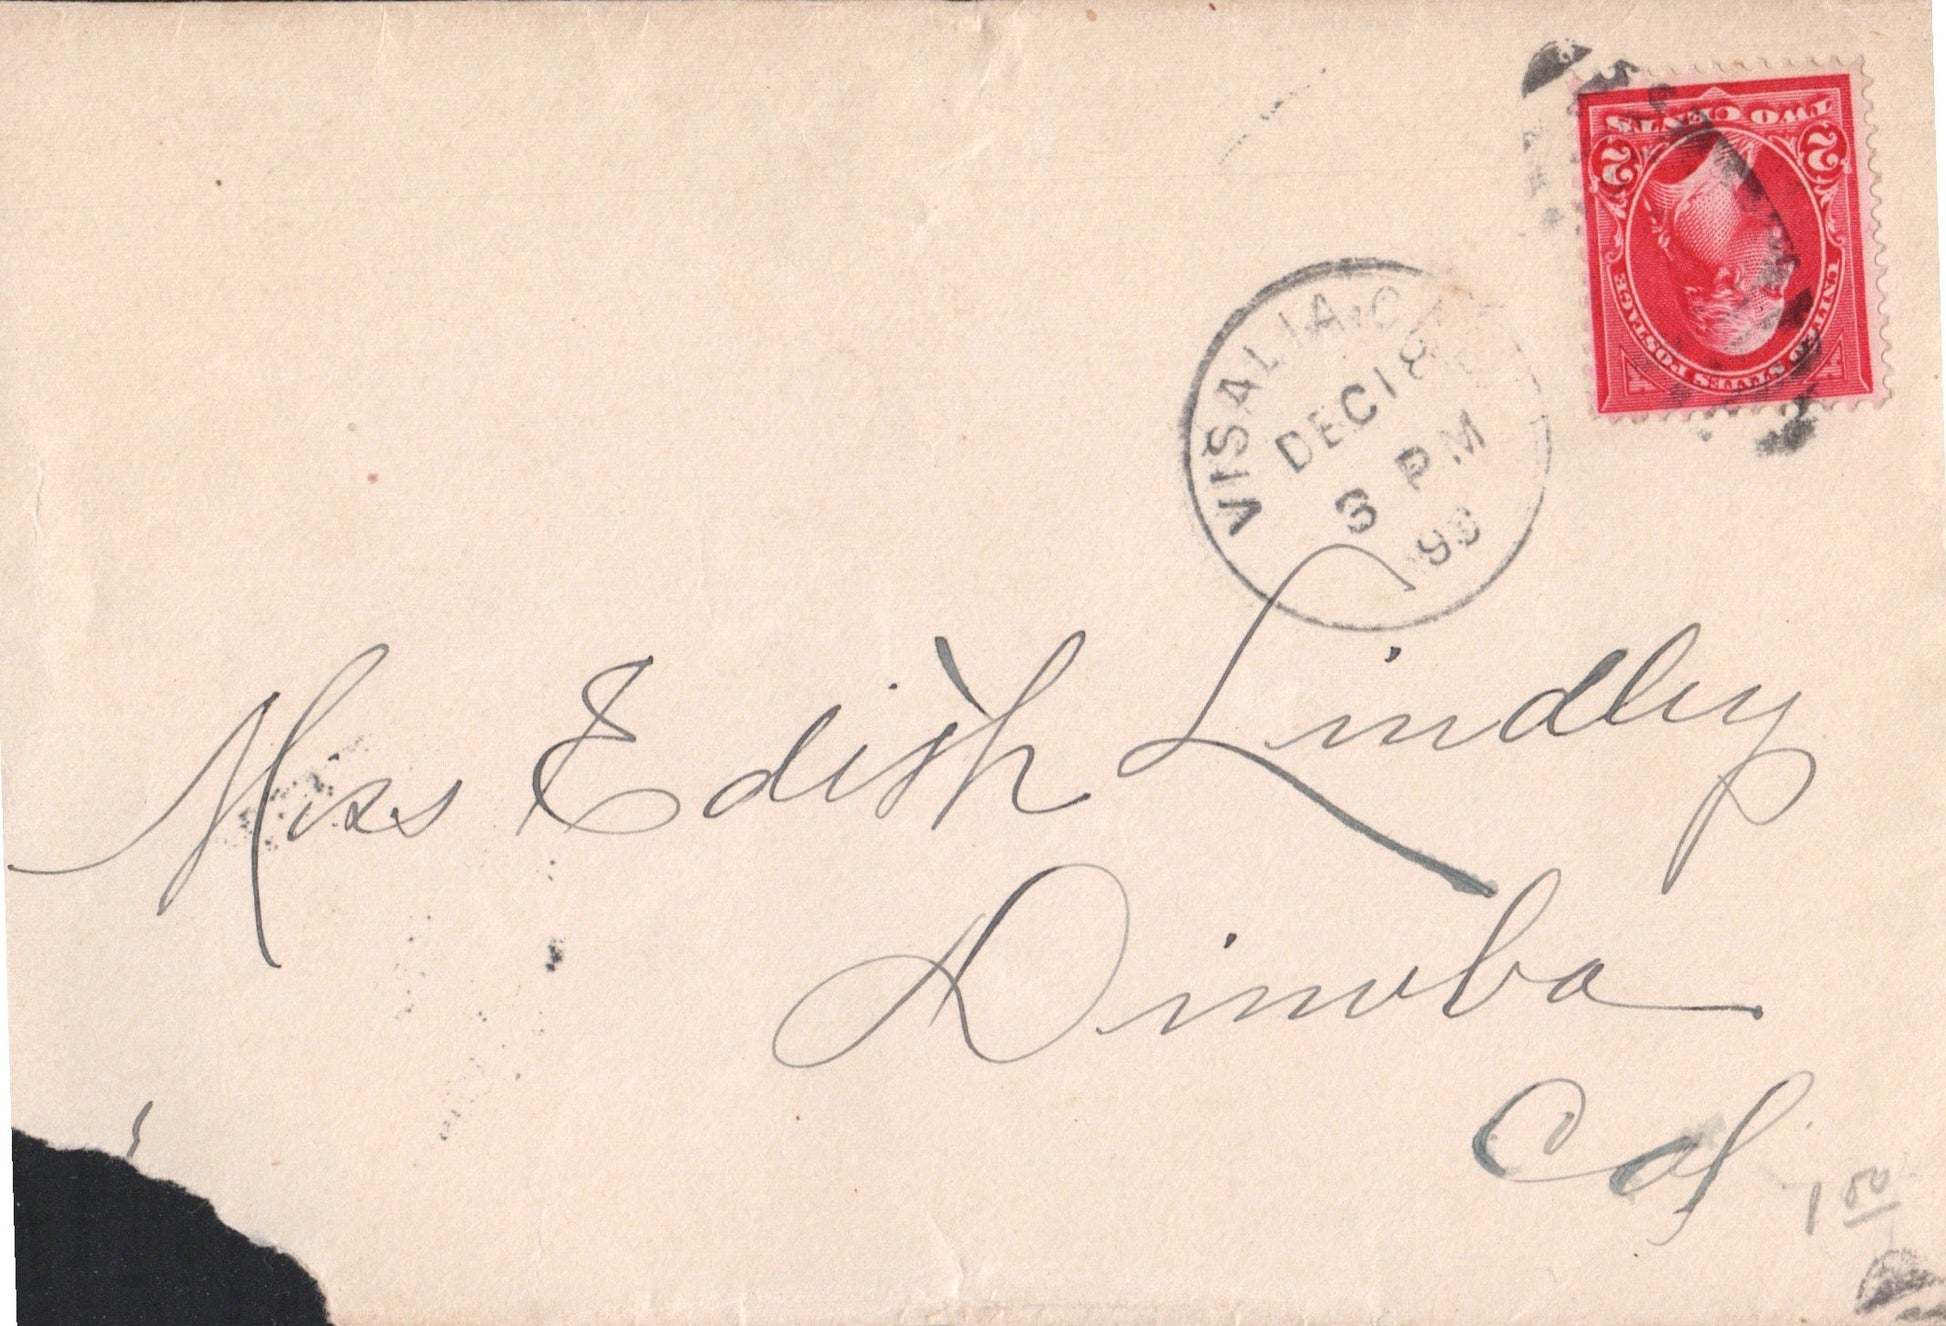 TWO CENTS
2 2
UNITED STATES POSTAGE
VISALIA
DEC 18
PM
Miss Edith Lindley
Dinuba
Cal
1 00